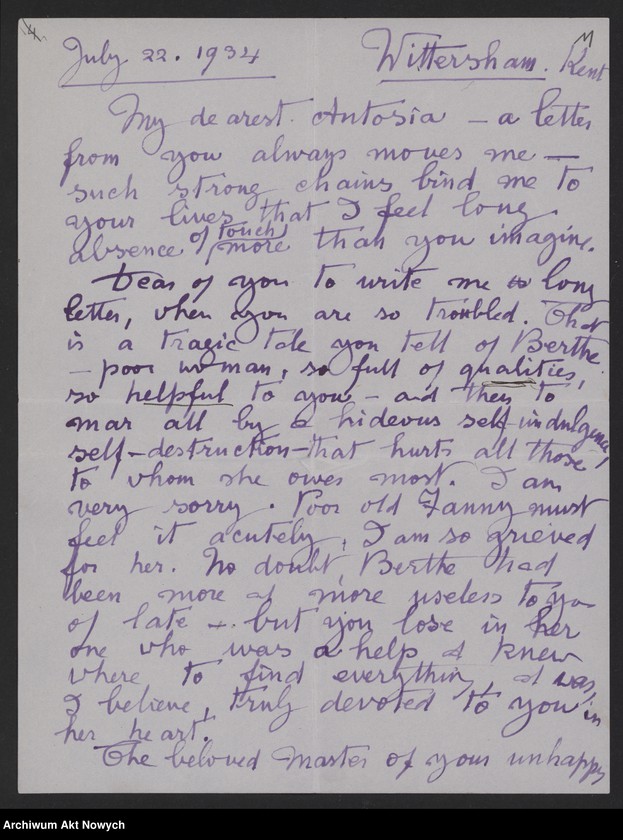 4
July 22. 1934 Wittersham. Kent
My dearest Antosia – a letter
from you always moves me –
such strong chains bind me to
your lives that I feel long
absence of touch more than you imagine.
Dear of you to write me so long
letter, when you are so troubled. That
is a tragic tale you tell of Berthe
– poor woman, so full of qualities,
so helpful to you – and then to
mar all by a hideous self-indulgence,
self-destruction – that hurts all those
to whom she owes most. I am
very sorry. Poor old Fanny must
feel it acutely, I am so grieved
for her. No doubt, Berthe had
been more & more useless to you
of late – but you lose in her
one who was a help & knew
where to find everything, & was,
I believe, truly devoted to you in
her heart.
The beloved Master of your unhappy
Archiwum Akt Nowych